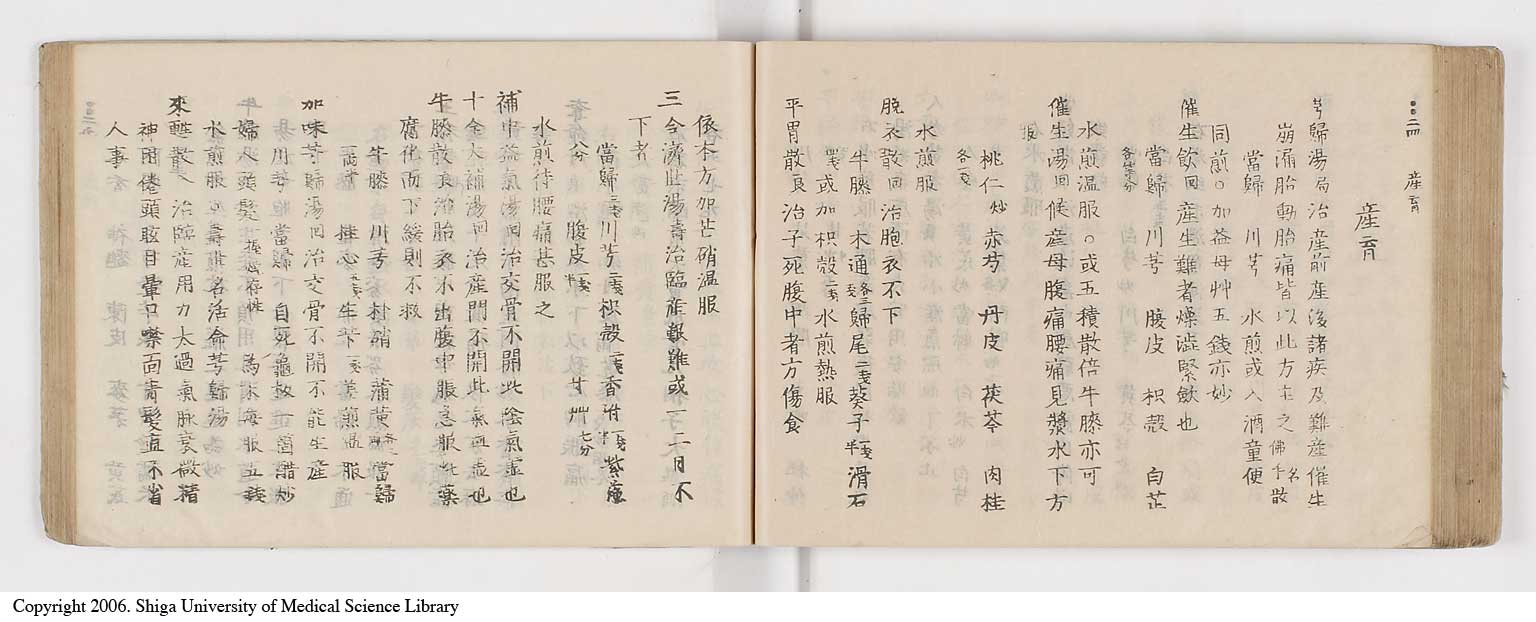 産育
産育
芎歸湯局治産前産後諸疾及難産催生
崩漏胎動胎痛皆以此方主之名佛手散
當歸 川芎 水煎或入酒童便
同煎。加益母艸五錢亦妙
催生飲回産生難者燥澁緊斂也
當歸 川芎 腹皮 枳殻 白芷
水煎温服。或五積散倍牛膝亦可
催生湯回候産母腹痛腰痛見漿水下方
服
桃仁炒 赤芍 丹皮 茯苓 肉桂
水煎服
脱衣散回治胞衣不下
牛膝 木通各三戔 歸尾二戔 葵子一戔半 滑石
或加枳殻二戔水煎熱服
平胃散良治子死腹中者方傷食
依本方加芒硝温服
三合濟生湯壽治臨産艱難或一二日不
下者
當歸三戔 川芎二戔 枳殻二戔 香附 紫蘇
八分 腹皮 甘艸七分
水煎待腰痛甚服之
補中益氣湯回治交骨不開此陰氣虚也
十全大補湯回治産門不開此氣血虚也
牛膝散良治胎衣不出腹中脹急服此藥
腐化而下緩則不救
牛膝 川芎 朴硝 蒲黄 當歸
桂心 生芐 姜煎温服
加味芎歸湯回治交骨不開不能生産
川芎 當歸 自死龜板一箇醋炒
婦人頭髮 燒灰存性 為末每服五錢
水煎服
來甦散入治臨産用力太過氣脉衰微精
神困倦頭眩目暈口噤面青髮直不省
人事
Copyright 2006. Shiga University of Medical Science Library